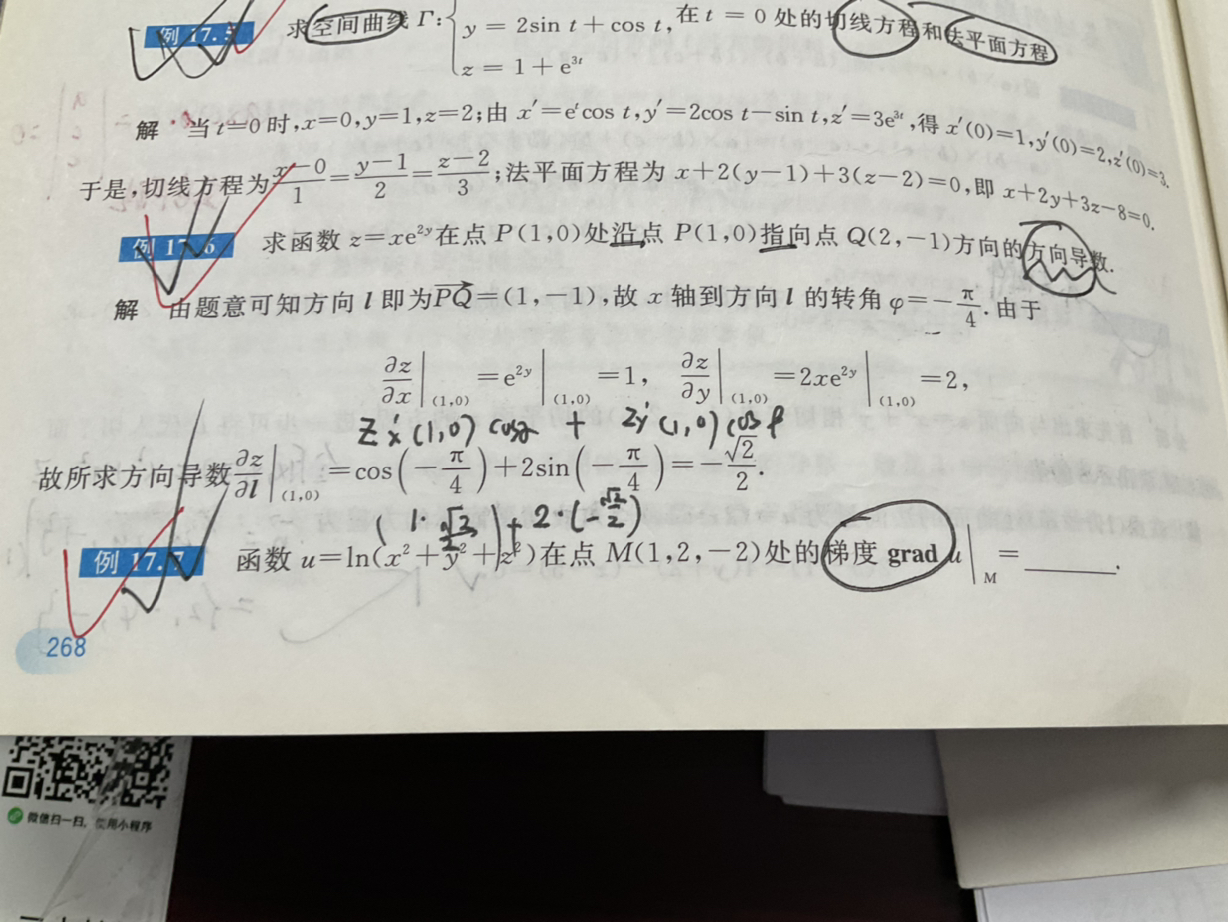 例 17.5 求空间曲线 Γ: { y = 2sin t + cos t, 在 t = 0 处的切线方程和法平面方程
z = 1 + e^{3t}
解 当 t=0 时,x=0,y=1,z=2;由 x′=e^t cos t,y′=2cos t−sin t,z′=3e^{3t},得 x′(0)=1,y′(0)=2,z′(0)=3.
于是,切线方程为 (x−0)/1 = (y−1)/2 = (z−2)/3;法平面方程为 x+2(y−1)+3(z−2)=0,即 x+2y+3z−8=0.
例 17.6 求函数 z=xe^{2y} 在点 P(1,0)处沿点 P(1,0)指向点 Q(2,−1)方向的方向导数.
解 由题意可知方向 l 即为 \overrightarrow{PQ}=(1,−1),故 x 轴到方向 l 的转角 φ=−π/4.由于
∂z/∂x |_(1,0) = e^{2y} |_(1,0) = 1, ∂z/∂y |_(1,0) = 2xe^{2y} |_(1,0) = 2,
Zx (1,0) cosα + Zy′ (1,0) cosβ
故所求方向导数 ∂z/∂l |_(1,0) = cos(−π/4) + 2sin(−π/4) = −√2/2.
1·√2/2 + 2·(−√2/2)
例 17.7 函数 u=ln(x²+y²+z²)在点 M(1,2,−2)处的梯度 grad u |_M = ______.
268
微信扫一扫，使用小程序